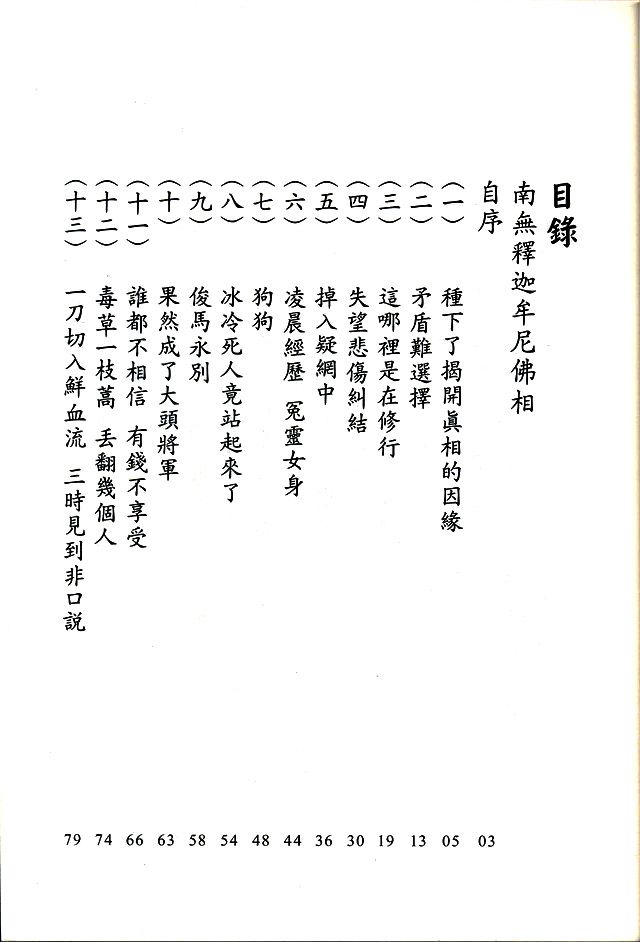 目錄
南無釋迦牟尼佛相
自序 03
(一) 種下了揭開眞相的因緣 05
(二) 矛盾難選擇 13
(三) 這哪裡是在修行 19
(四) 失望悲傷糾結 30
(五) 掉入疑網中 36
(六) 凌晨經歷 冤靈女身 44
(七) 狗狗 48
(八) 冰冷死人竟站起來了 54
(九) 俊馬永別 58
(十) 果然成了大頭將軍 63
(十一) 誰都不相信 有錢不享受 66
(十二) 毒草一枝蒿 丟翻幾個人 74
(十三) 一刀切入鮮血流 三時見到非口説 79